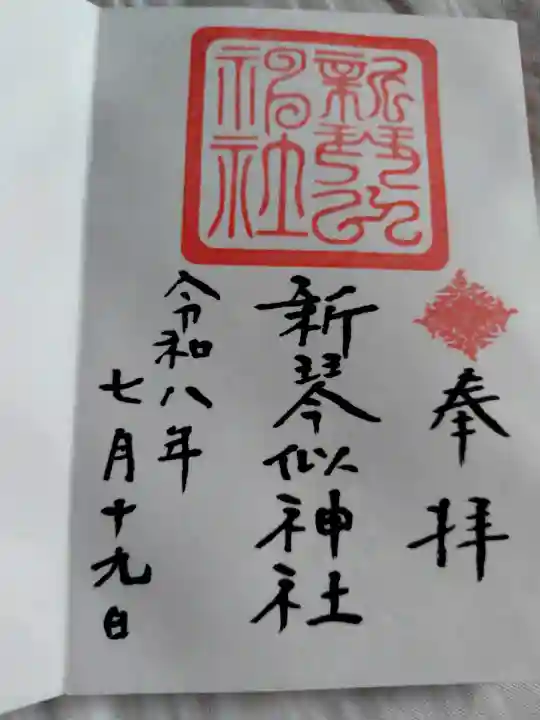 奉拝
新琴似神社
新琴似
神社
令和八年
七月十九日